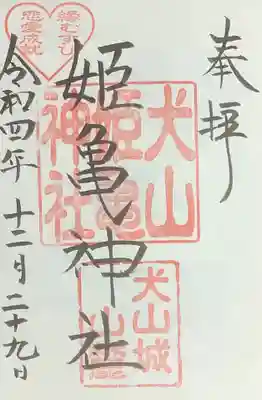 奉拝
犬山
姫亀
神社
姫亀神社
犬山城
縁むすび
恋愛成就
令和四年十二月二十九日